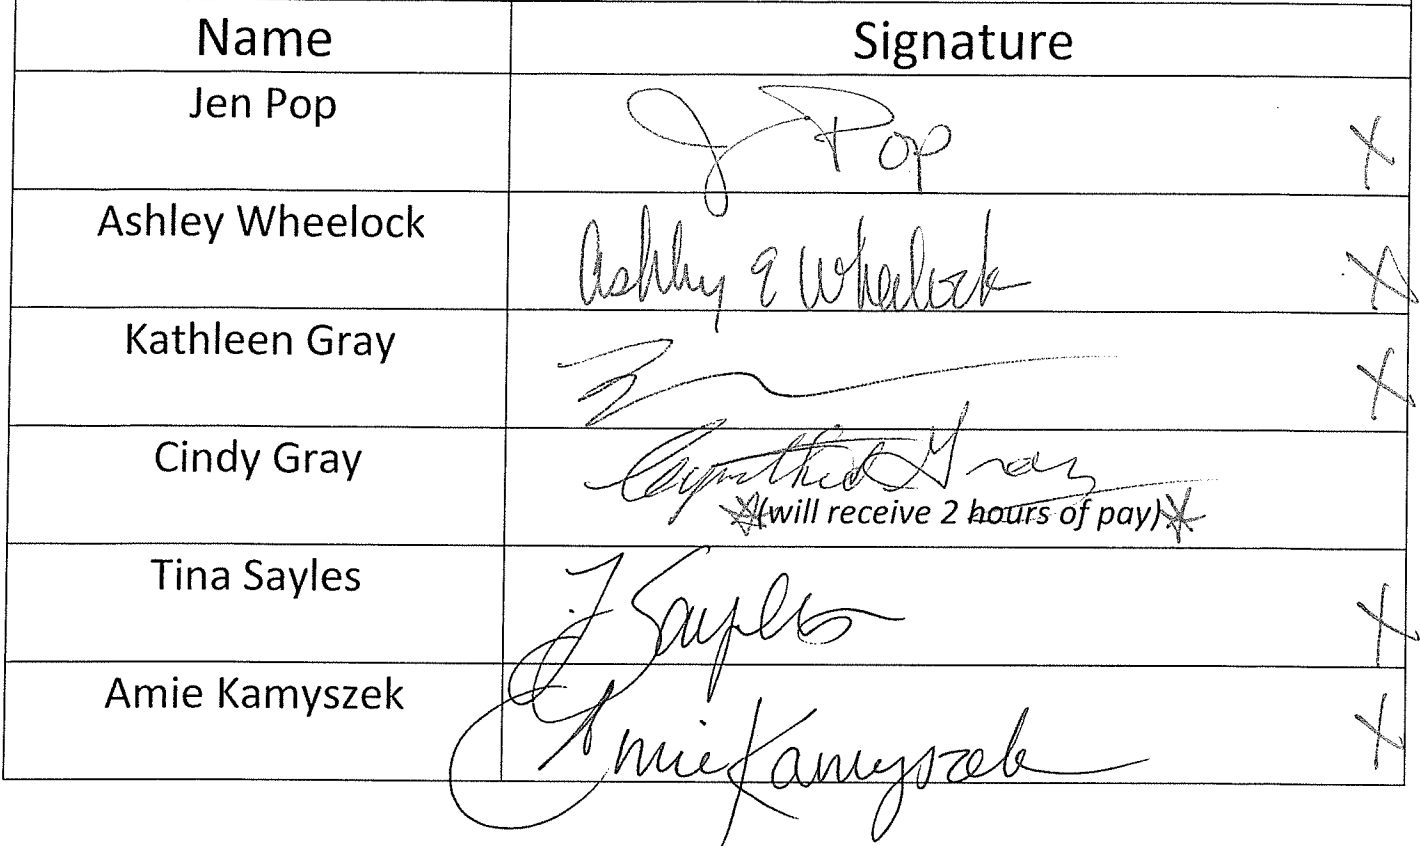 Name Signature
Jen Pop J Pop X
Ashley Wheelock Ashley E Wheelock X
Kathleen Gray X
Cindy Gray Cynthia Gray
(will receive 2 hours of pay)
Tina Sayles T Sayles X
Amie Kamyszek Amie Kamyszek X